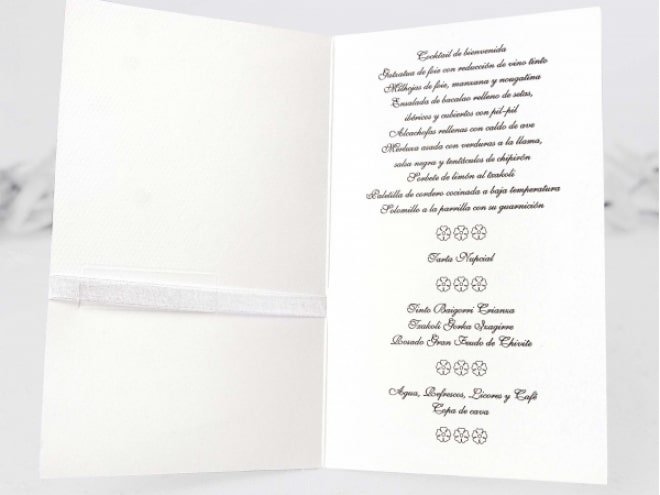 Cocktail de bienvenida
Gatzatua de foie con reducción de vino tinto
Milhojas de foie, manzana y nougatina
Ensalada de bacalao relleno de setas,
ibéricos y cubiertos con pil-pil
Alcachofas rellenas con caldo de ave
Merluza asada con verduras a la llama,
salsa negra y tentáculos de chipirón
Sorbete de limón al txakoli
Paletilla de cordero cocinada a baja temperatura
Solomillo a la parrilla con su guarnición
Tarta Nupcial
Tinto Baigorri Crianza
Txakoli Gorka Izagirre
Rosado Gran Feudo de Chivite
Agua, Refrescos, Licores y Café
Copa de cava